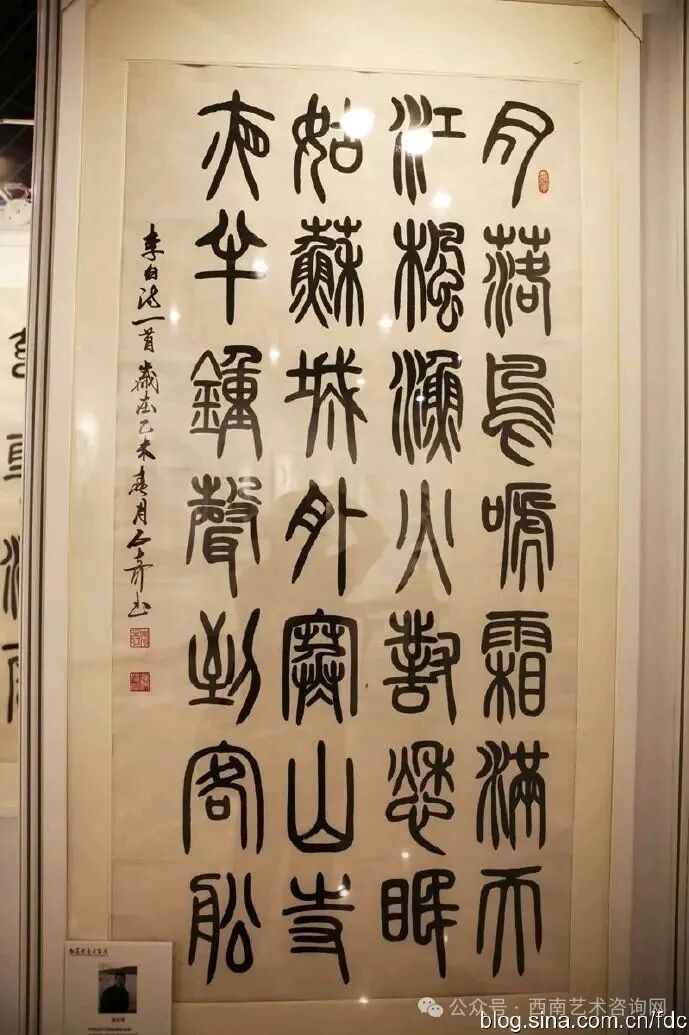 月落烏啼霜滿天
江楓漁火對愁眠
姑蘇城外寒山寺
夜半鐘聲到客船
李白詩一首歲在乙未春月
公众号：西南艺术咨询网
blog.sina.com.cn/fdc